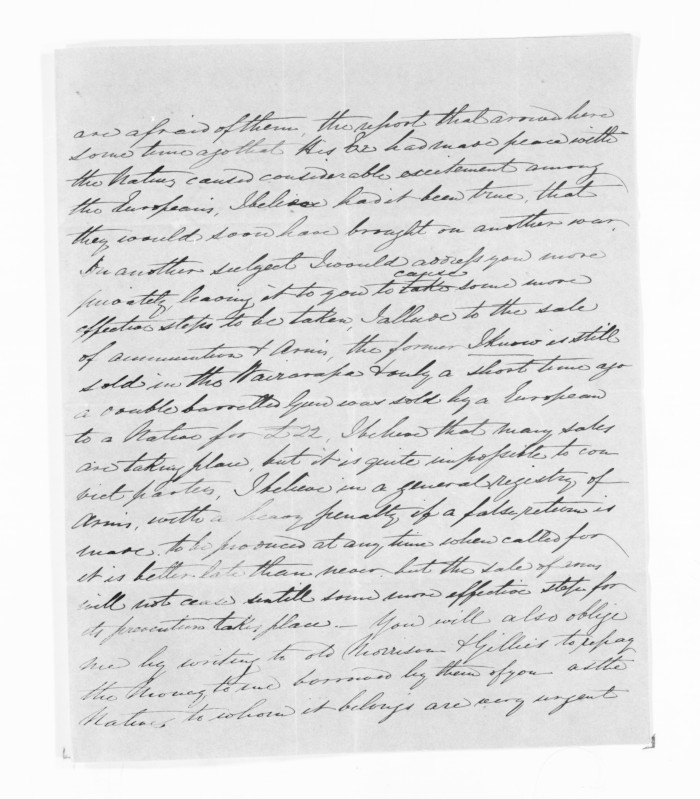 are afraid of them, the report that arrived here
some time ago that His Ex had made peace with
the Natives caused considerable excitement among
the Europeans, I believe had it been true, that
they would soon have brought on another war.
On another subject I would address you more
privately, leaving it to you to take cause some more
effective steps to be taken I allude to the sale
of ammunition & Arms, the former I know is still
sold in the Wairarapa & only a short time ago
a double barrelled Gun was sold by a European
to a Native for £22, I believe that many sales
are taking place, but it is quite impossible to con
vict parties, I believe in a general registry of
Arms, with a heavy penalty if a false return is
made, to be produced at any time when called for
it is better late than never, but the sale of arms
will not cease untill some more effective steps for
its prevention takes place — You will also oblige
me by writing to old Morrison & Gillies to repay
the Money, to me borrowed by them of you as the
Natives to whom it belongs are very urgent